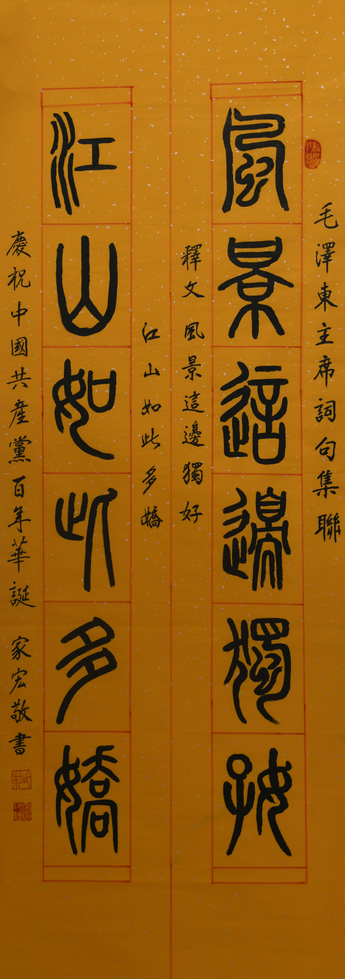 毛澤東主席詞句集聯
風景這邊獨好
釋文 風景這邊獨好
江山如此多嬌
江山如此多嬌
慶祝中國共產黨百年華誕 家宏敬書